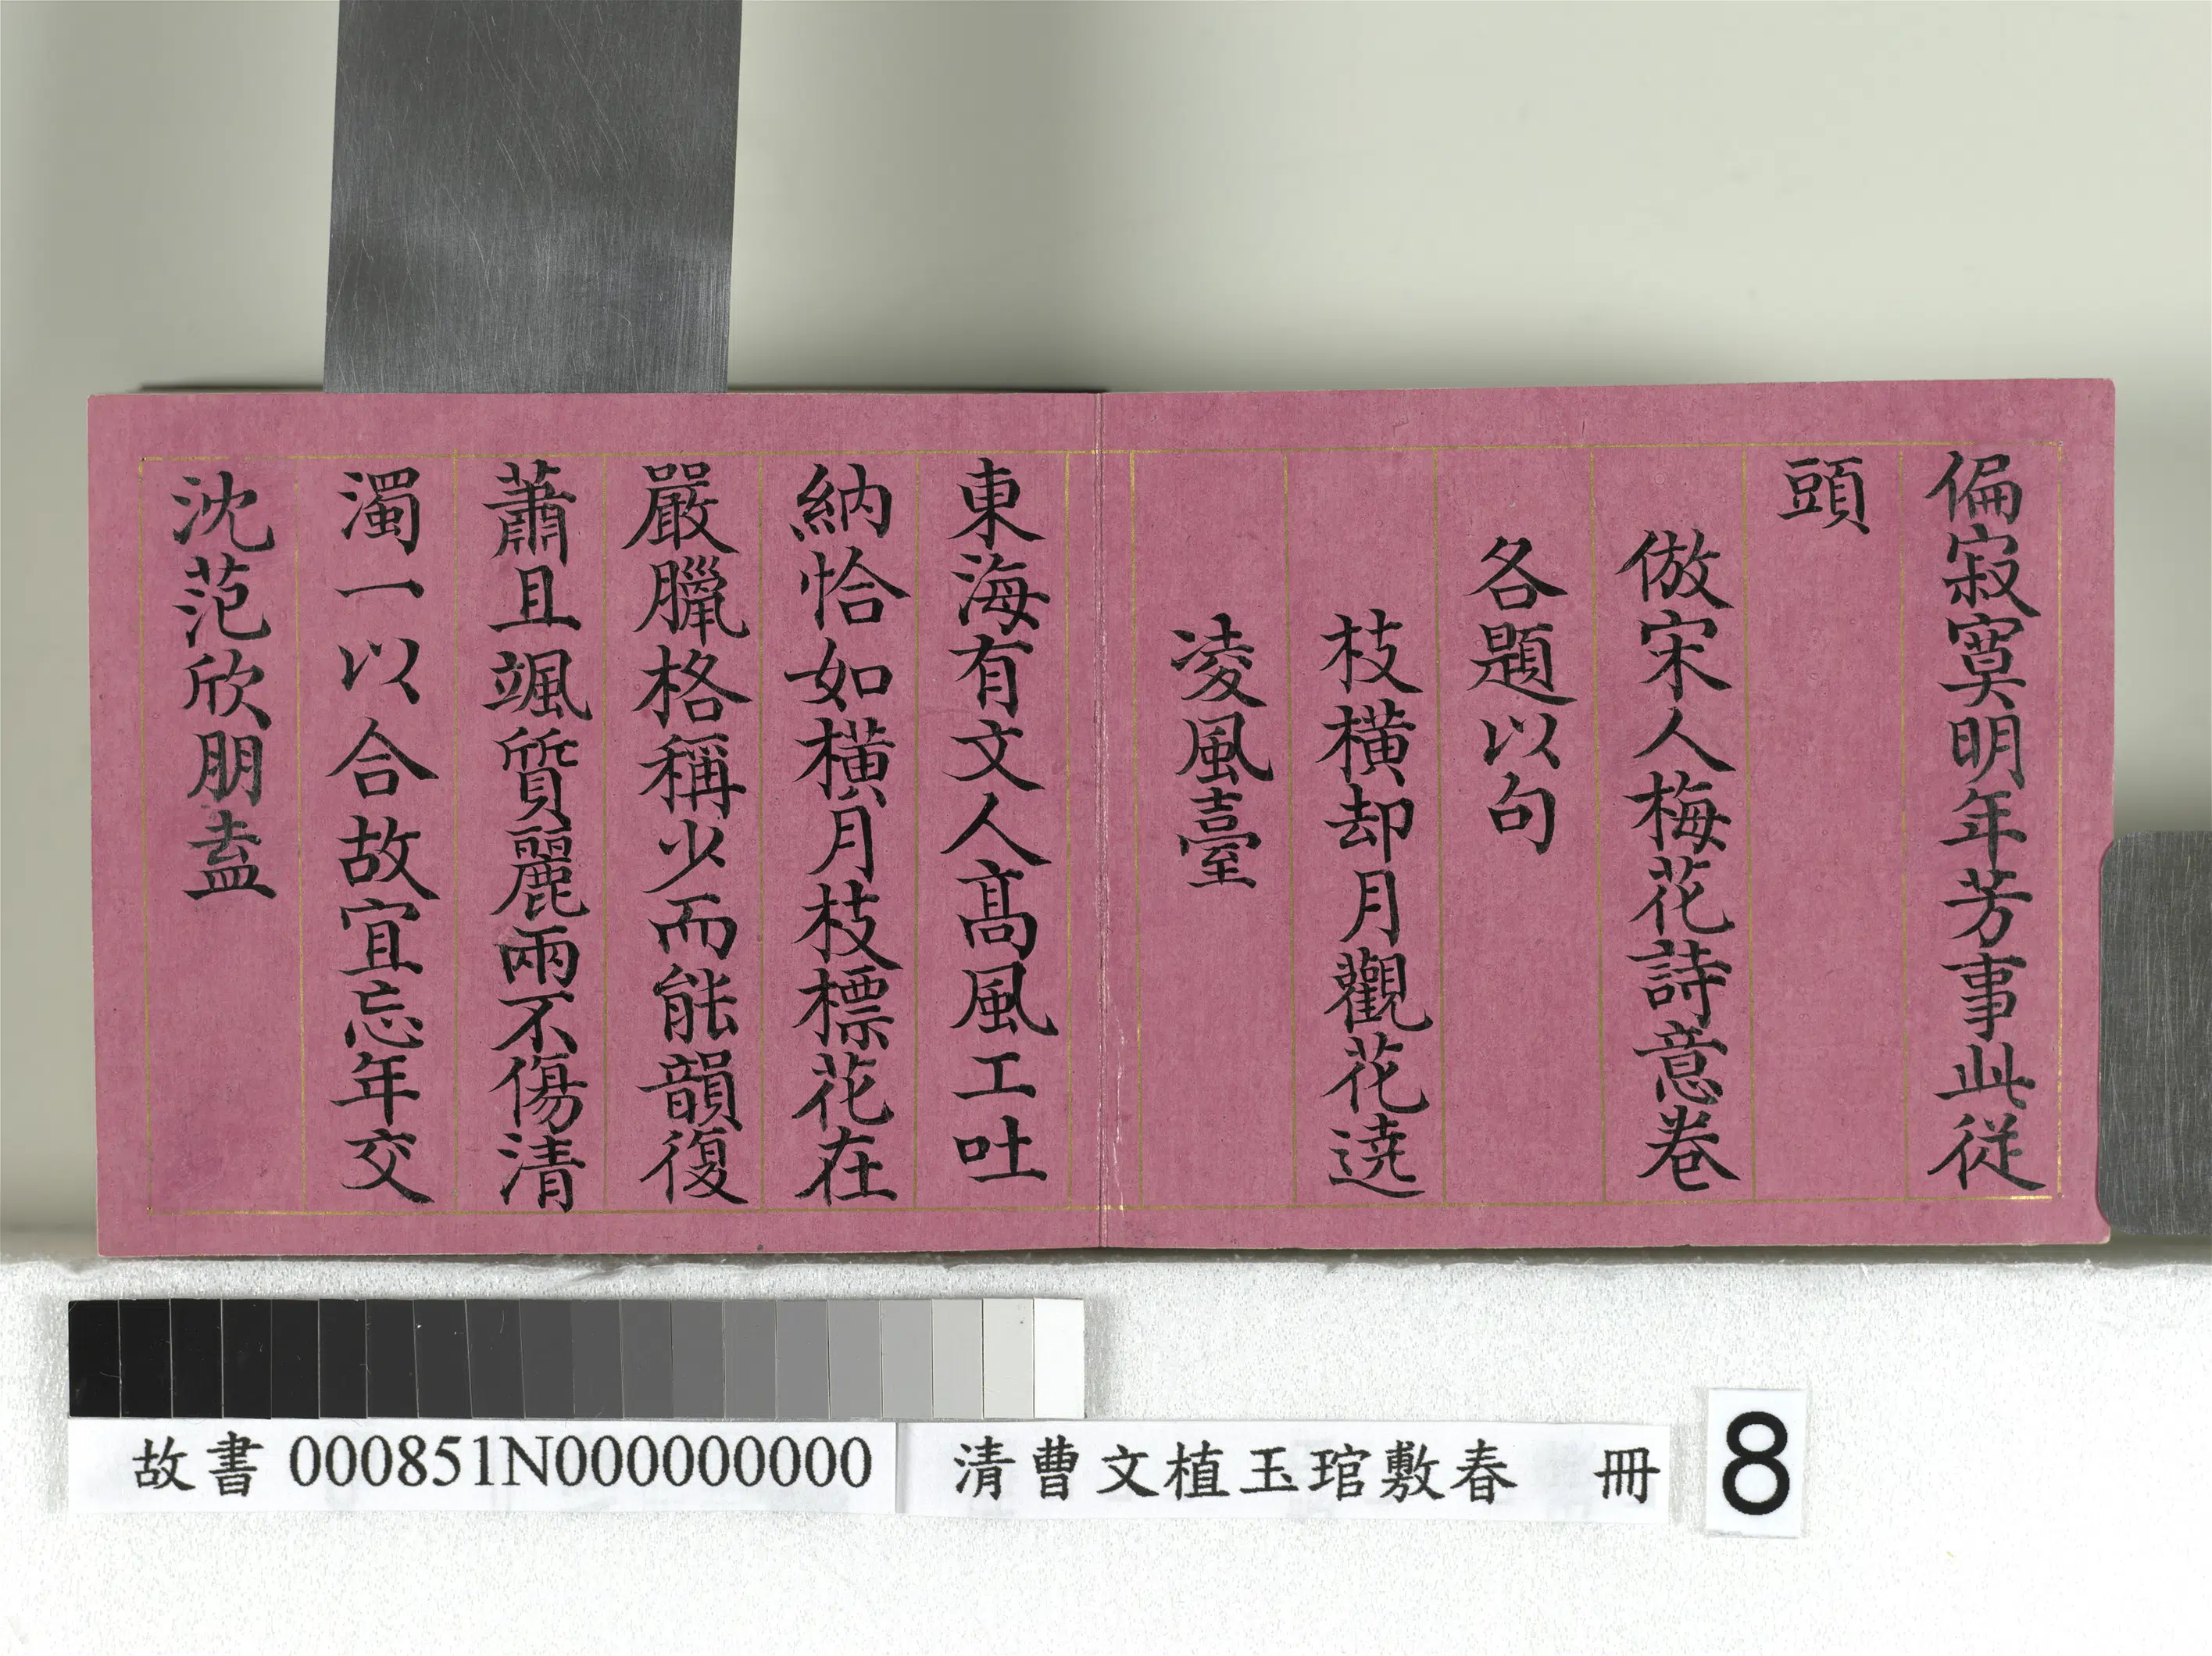 偏寂寞明年芳事此從
頭
倣宋人梅花詩意卷
各題以句
枝橫却月觀花遶
凌風臺
東海有文人高風工吐
納恰如橫月枝標花在
嚴臘格稱少而能韻復
蕭且颯質麗兩不傷清
濁一以合故宜忘年交
沈范欣朋盍
故書000851N000000000 清曹文植玉琯敷春 冊 8